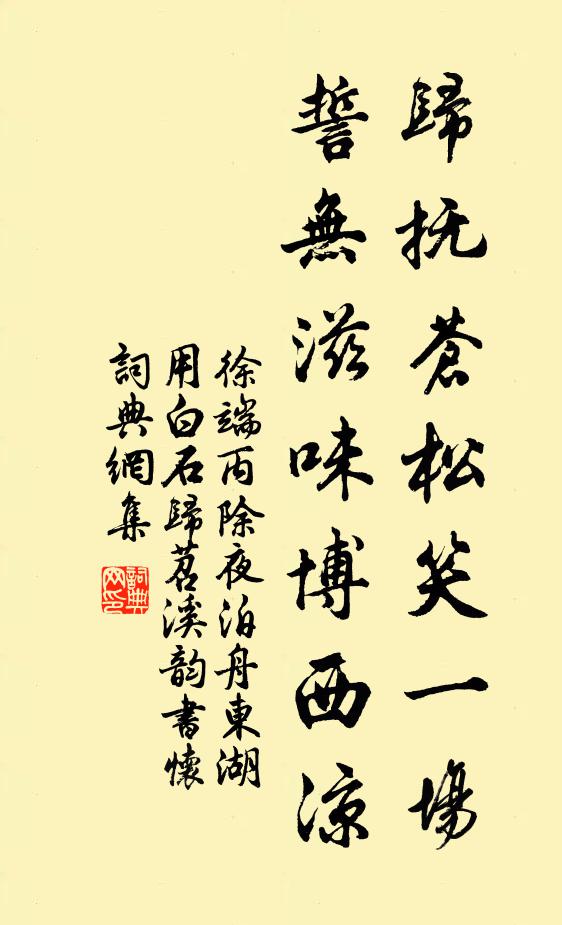 歸抚蒼松笑一場
誓無滋味博西涼
徐端丙除夜泊舟東湖
用白石歸苕溪韵書懷
詞典網集
詞典
网印